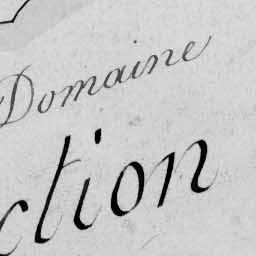 Domaine
ction